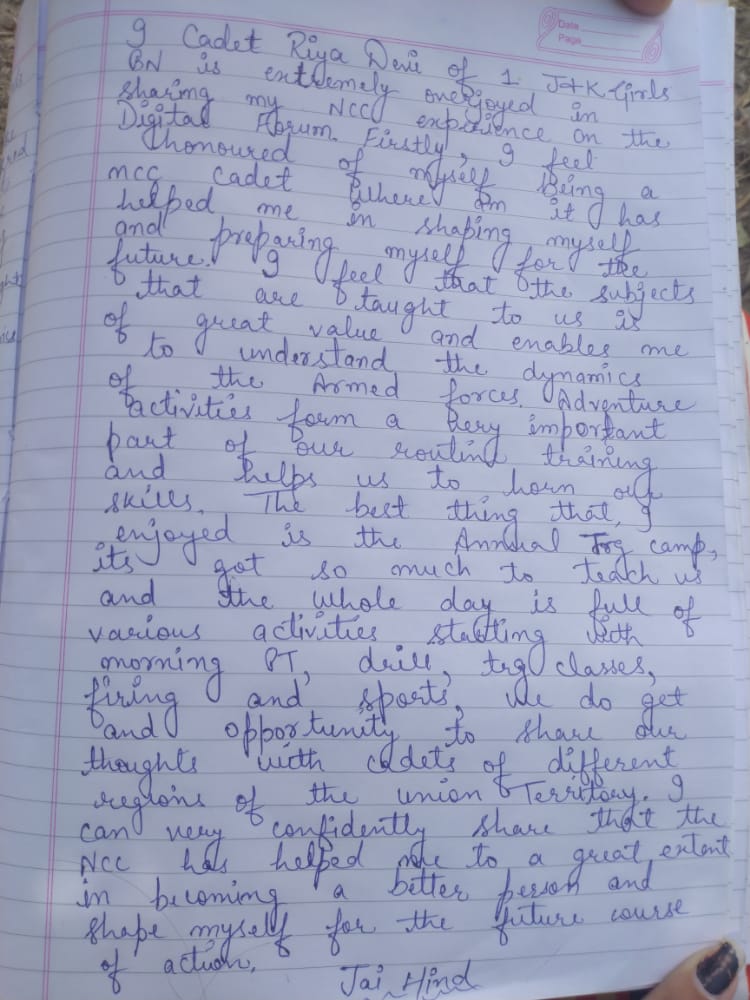 Date
Page
I Cadet Riya Devi of 1 J+K Girls
BN is extremely overjoyed in
sharing my NCC experience on the
Digital Forum. Firstly, I feel
honoured of myself Being a
NCC Cadet where am it has
helped me in shaping myself
and preparing myself for the
future. I feel that the subjects
that are taught to us is
of great value and enables me
to understand the dynamics
of the Armed forces. Adventure
activities form a very important
part of our routine training
and helps us to horn our
skills. The best thing that I
enjoyed is the Annual Trg camp,
its got so much to teach us
and the whole day is full of
various activities starting with
morning PT, drill, trg classes,
firing and sports, we do get
and opportunity to share our
thoughts with cadets of different
regions of the union Territory. I
can very confidently share that the
NCC has helped me to a great extent
in becoming a better person and
shape myself for the future course
of action.
Jai Hind